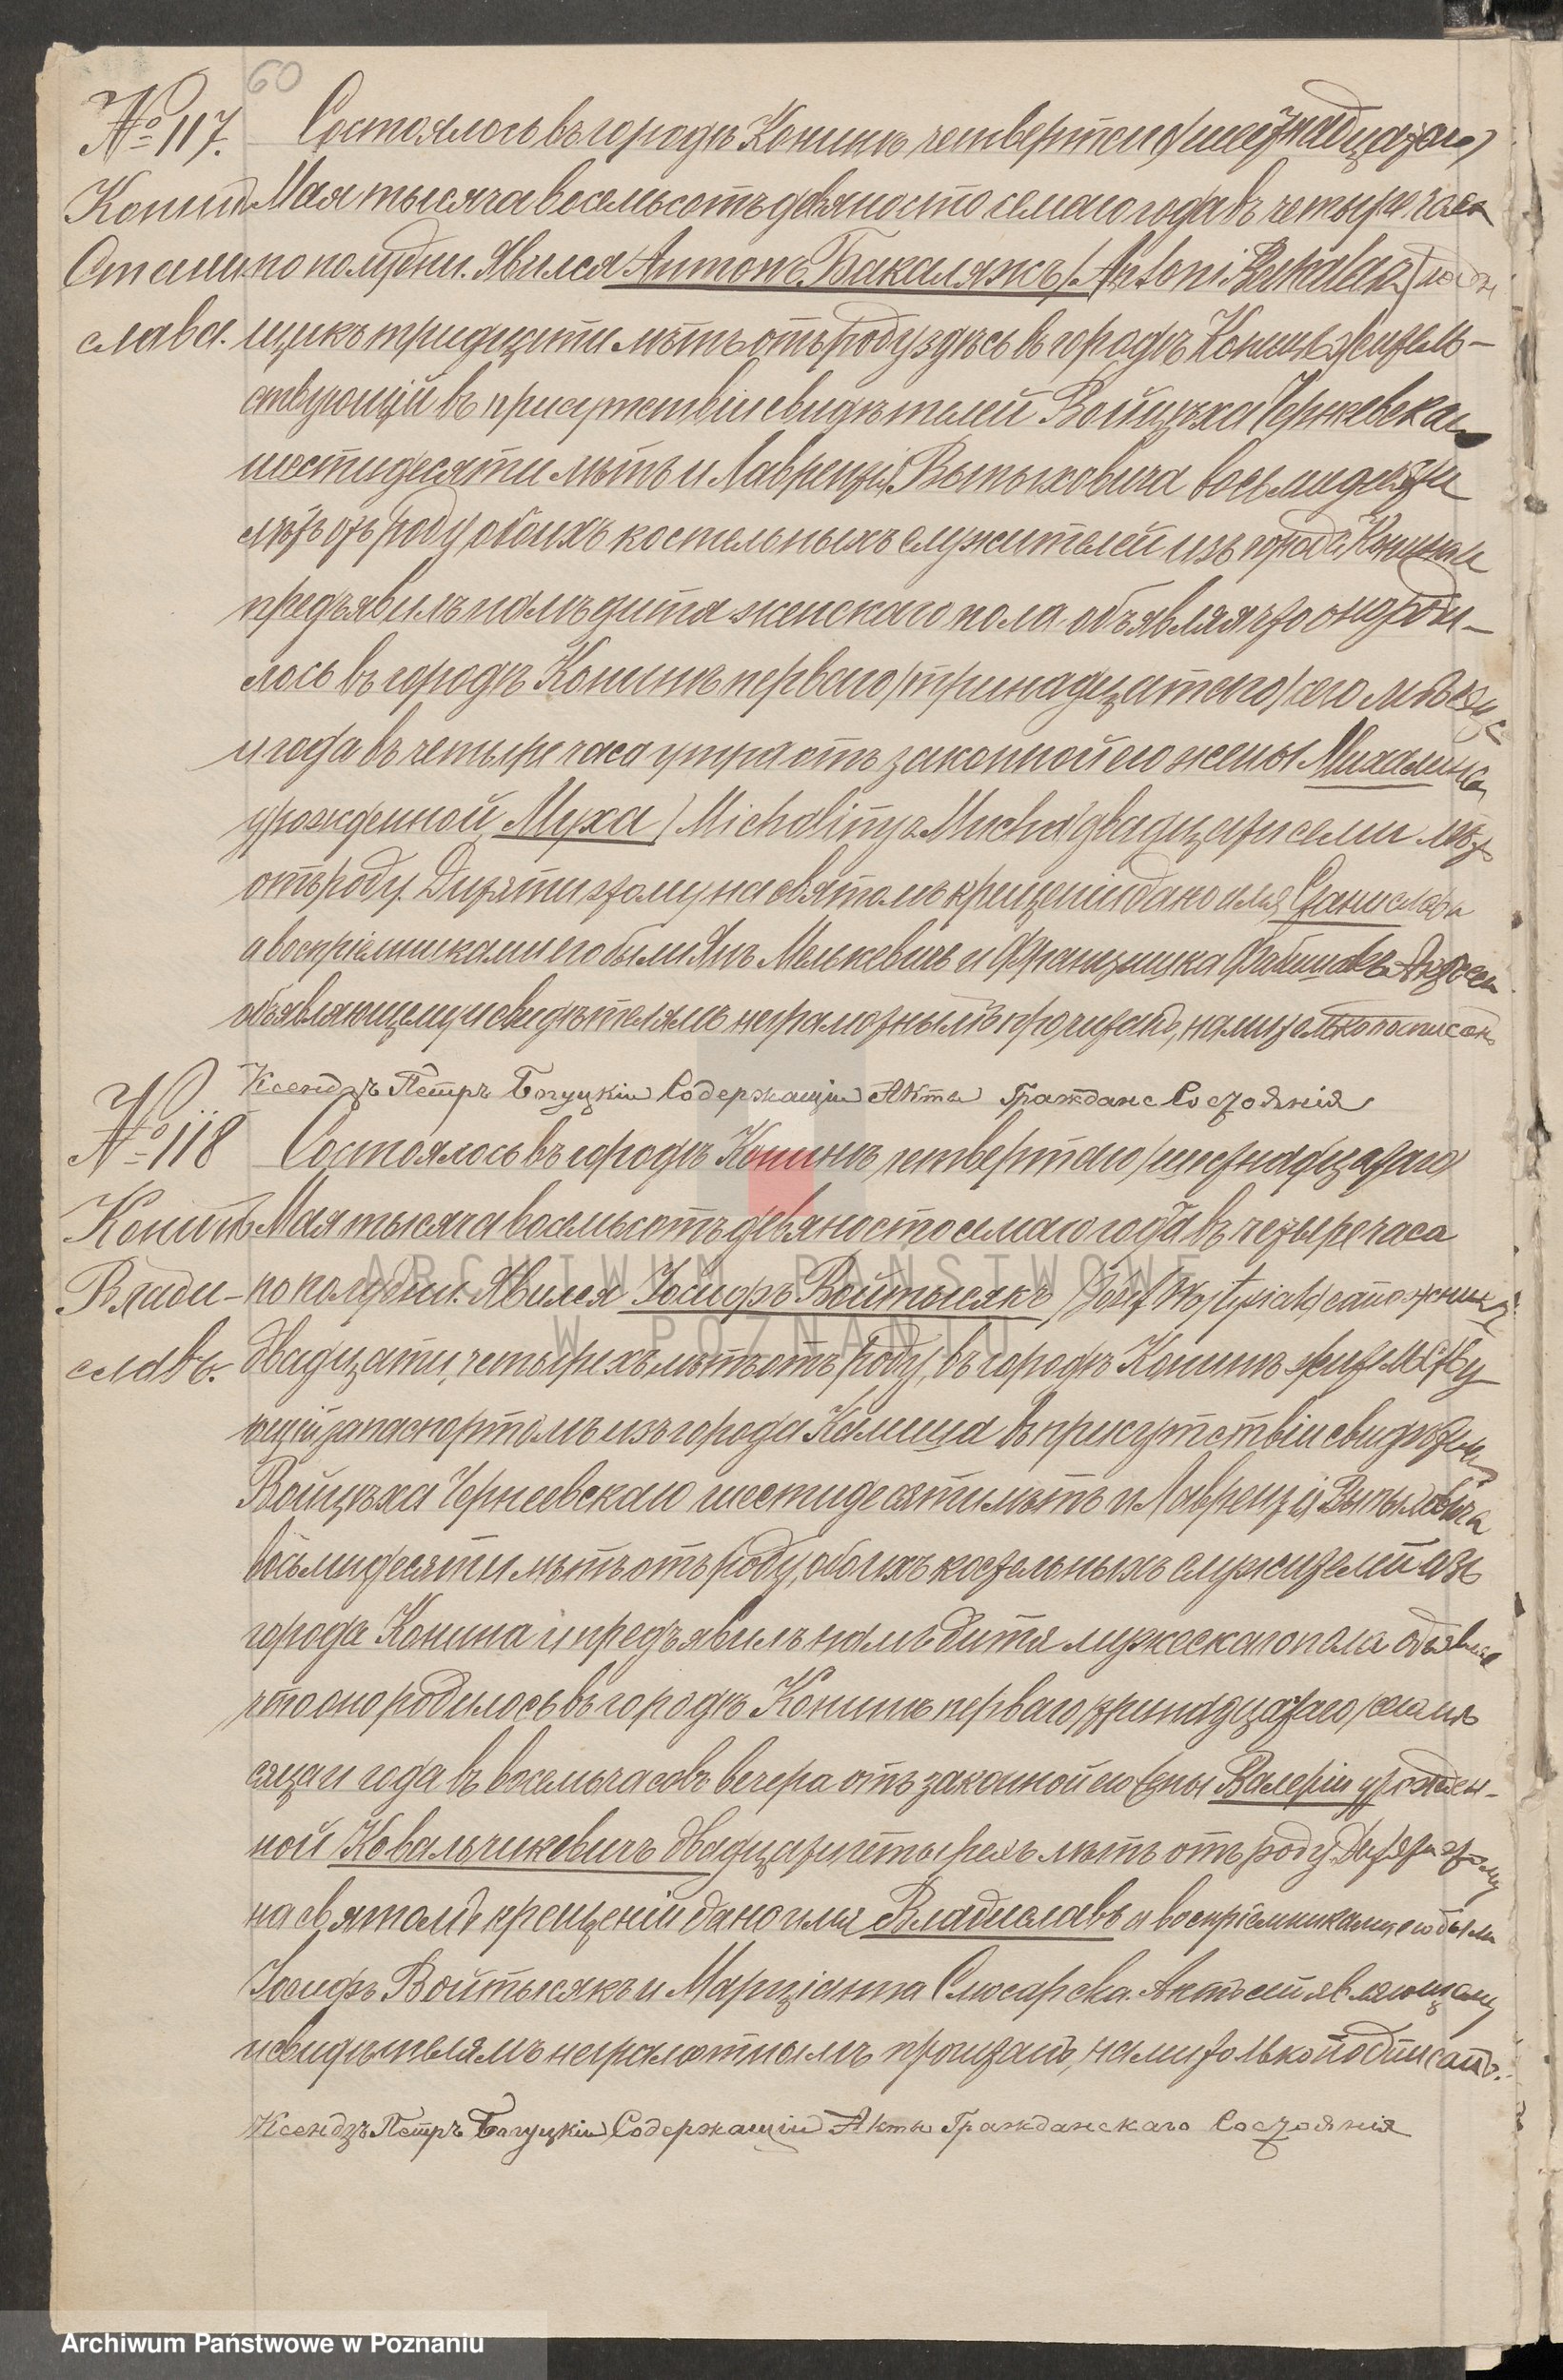 60
№ 117.
Конинъ
Стани
слава.
Состоялось въ городѣ Конинѣ четвертаго (шестнадцатаго)
Мая тысяча восемьсотъ девяносто седьмаго года въ четыре часа
по полудни. Явился Антонъ Бакаляжъ (Antoni Bakalarz)
щикъ тридцати лѣтъ отъ роду здѣсь въ городѣ Конинѣ житель-
ствующій въ присутствіи свидѣтелей Войцѣха Чернѣевскаго
шестидесяти лѣтъ и Лаврентія Вытыховича восьмидесяти
лѣтъ отъ роду обоихъ костельныхъ служителей изъ города Конина и
предъявилъ намъ дитя женскаго пола объявляя что оно роди-
лось въ городѣ Конинѣ перваго (тринадцатаго) сего мѣсяца
и года въ четыре часа утра отъ законной его жены Михалины
урожденной Муха (Michaliny z Mucha) двадцати семи лѣтъ
отъ роду. Дитяти этому на святомъ крещеніи дано имя Станислава
а воспріемниками его были Янъ Мелькевичъ и Францишка Фабишакъ. Актъ сей
объявляющему и свидѣтелямъ неграмотнымъ прочитанъ, нами только подписанъ
Ксендзъ Петръ Богуцкій Содержащій Акты Гражданс Состоянія
№ 118
Конинъ
Влади-
славъ.
Состоялось въ городѣ Конинѣ, четвертаго (шестнадцатаго)
Мая тысяча восемьсотъ девяносто седьмаго года въ четыре часа
по полудни. Явился Іосифъ Войтысякъ (Józef Wojtysiak) сапожникъ
двадцати четырехъ лѣтъ отъ роду, въ городѣ Конинѣ жительству
ющій за паспортомъ изъ города Калиша въ присутствіи свидѣтелей
Войцѣха Чернѣевскаго шестидесяти лѣтъ и Лаврентія Вытыховича
восьмидесяти лѣтъ отъ роду, обоихъ костельныхъ служителей изъ
города Конина и предъявилъ намъ дитя мужескаго пола объявляя
что оно родилось въ городѣ Конинѣ перваго (тринадцатаго) сего мѣ
сяца и года въ восемь часовъ вечера отъ законной его жены Валеріи урожден-
ной Ковальчикевичъ двадцати четырехъ лѣтъ отъ роду. Дитяти этому
на святомъ крещеніи дано имя Владиславъ а воспріемниками его были
Іосифъ Войтысякъ и Марціанна Слюсарска. Актъ сей являющему
и свидѣтелямъ неграмотнымъ прочитанъ, нами только подписанъ.
Ксендзъ Петръ Богуцкій Содержащій Акты Гражданскаго Состоянія
ARCHIWUM PAŃSTWOWE
W POZNANIU
Archiwum Państwowe w Poznaniu